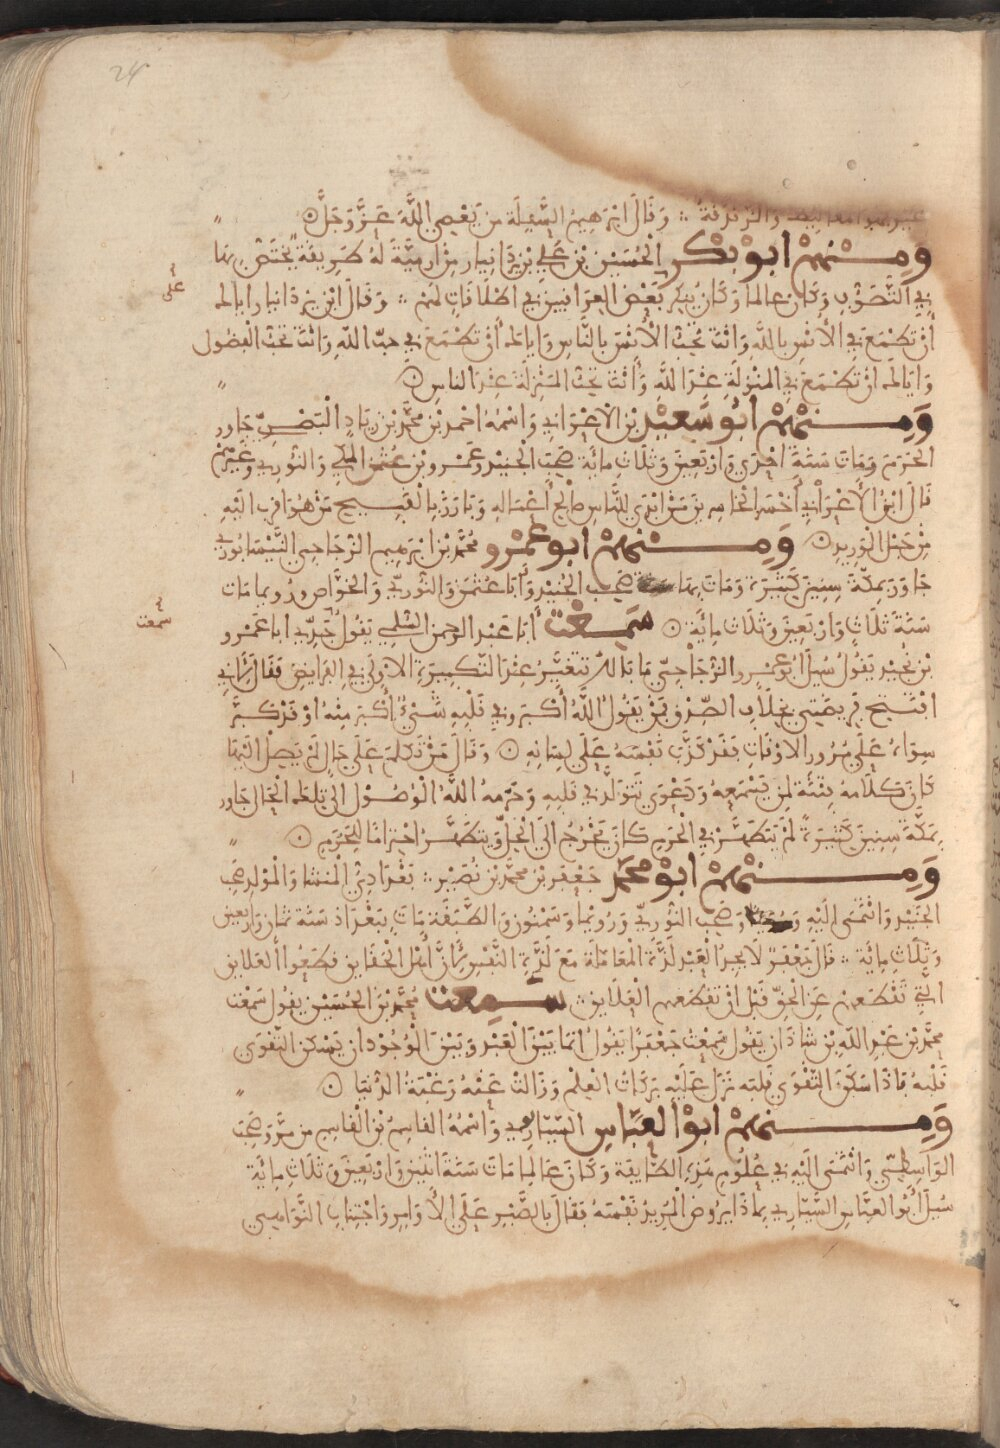 24
وَقَالَ ابْرَهِيمُ السَّفِلَة من يَعْصِي اللَّهَ عَزَّ وَجَلَّ
وَمِنْهُمْ ابُو بَكْرٍ الْحُسَيْن بْن عَلِي بْن يَزْدَانِيار مِن ارمِيَّةَ لَهُ طَرِيقَة يَخْتَصُّ بِهَا
فِي التَّصَوُّفِ وَكَانَ عالماً وَكَانَ يُنكِر بَعْضَ العِرَاقِيينَ فِي اطْلَاقَاتٍ لَهُمْ وَقَالَ ابْن يَزْدَانيار اياك
على
أنْ تَطْمَعَ فِي الأُنْسِ بِاللَّهِ وَانْتَ تُحِبُّ الأُنْسَ بِالنَّاسِ وَاياك أنْ تَطْمَعَ فِي حبّ اللّهِ وَانْتَ تحبّ الْفضُولَ
وَايَاك انْ تَطْمَعَ فِي المنْزِلَةِ عِنْدَ اللَّهِ وَأَنْتَ تحِبُّ المَنْزِلَةَ عِنْدَ الناسِ
وَمِنْهُمْ ابُو سَعِيْدْ بْن الْأعْرَابِي وَاسْمُهُ احْمد بْن مُحَمَّد بْن زِيَادٍ الْبَصْرِيّ جَاور
الحَرَمَ وَمَاتَ سَنَةَ احْدَي وَارْبَعِينَ وَثَلَاثِ مِائَة صَحِبَ الجُنَيْدَ وعَمْرو بْن عُثْمَن المَكِي وَالنُّورِي وَغَيْرَهُمْ
قَالَ ابْنُ الأعْرَابِي أَخْسَر الخَاسِرِينَ مَنْ ابْدَي لِلنَّاسِ صَالِحَ أعْمَالِهِ وَبَارَزَ بِالقَبِيح مَنْ هُوَ اقرب الَيْهِ
مِنْ حَبْل الْوَرِيدِ وَمِنْهُمْ ابو عَمْرو مُحَمَّدُ بْن ابْرَهِيم الزجَاجِي النَّيْسَابُورِي
جَاوَرَ بِمكَّةَ سِنِينَ كَثِيرَة وَمَاتَ بِهَا صَحِبَ الْجُنَيْدَ وَأبَا عُثْمَنَ وَالنُّورِيّ وَالخوَّاصَ وَرُوَيما مَاتَ
سَنَةَ ثَلَاثٍ وَارْبَعِينَ وَثَلَاثِ مِائَة سَمِعْتُ أبَا عَبْدِ الرحمن السُّلمِي يَقُول جَدِّي ابا عَمْرو
سمعت
بْن نُجَيْد يَقُولُ سُيِلَ ابُو عَمْرو الزجَاجِيّ مَا بَالكَ تَتَغَيَّرُ عِنْدَ التَّكْبِيرَةِ الأُولَي فِي الفَرَايضِ فَقَالَ لأنِّي
افْتَتِحُ فَرِيضَتِي بِخِلَافِ الصِّدْقِ فَمَنْ يَقُولُ اللَّهُ أكْبَر وفِي قَلْبِهِ شَيْءٌ أكْبَرُ مِنْهُ اوْ قَدْ كَبَّرَ
سِوَاهُ عَلَي مُرُور الاوْقَاتِ فَقَدْ كَذَّبَ نَفْسَهُ عَلَي لِسَانِهِ وَقَالَ مَنْ تَكَلَّمَ عَلَي حَالٍ لَمْ يَصِلْ الَيْهَا
كَانَ كَلَامهُ فِتْنَةً لِمَن يَسْمَعهُ وَدَعْوَي تَتَوَلَّدُ فِي قَلْبِهِ وَحَرَمهُ اللَّهُ الْوُصُول الي تِلْكَ الْحَالِ جَاوَرَ
بِمَكَّةَ سِنِينَ كَثِيرَةً لَمْ يَتَطَهَّرْ فِي الْحَرَمِ كَانَ يَخْرُجُ الَي الْحِلِّ وَيتَطَهَّرُ احْتِرَامًا لِلْحَرَمِ
وَمِنْهُمْ ابُو مُحَمَّدٍ جَعْفَر بْن مُحَمَّد بْن نُصَيْر بَغْدَادِيُّ الْمَنشَا وَالْمَوْلِد صَحِبَ
الجُنَيْدَ وَانْتَمَي الَيْهِ وَصَحِبَ النُّورِيّ وَرُوَيْمًا وَسَمْنُون وَالطَّبَقَة مَاتَ بِبَغْدَادَ سَنَةَ ثَمَان وَارْبَعِينَ
وَثَلَاثِ مِائَة قَالَ جَعْفَرٌ لَا يَجِدُ الْعَبْد لَذَّةَ الْمعَامَلَةِ مَعَ لَذَّةِ النَّفْسِ لأنَّ أهْلَ الْحَقَايِق قَطَعُوا الْعَلَايِقَ
الَّتِي تَقْطَعهمْ عَنِ الْحَقِّ قَبْلَ انْ تَقْطَعهم الْعَلَايِق سَمِعْتُ مُحَمَّدَ بْنَ الْحُسَيْن يقُول سَمْعْت
مُحَمَّدَ بْن عَبْدِ اللّه بْن شاذَان يَقُول سَمِعْتُ جَعْفَرًا يَقُولُ انَّمَا بَيْنَ الْعَبْدِ وَبَيْنَ الْوُجُودِ ان يَسْكن التَّقْوَي
قَلْبَهُ فَاذَا سَكَنَ التَّقْوَي قَلْبَه نَزَلَ عَلَيْهِ بَرَكَاتُ الْعِلْم وَزَالَتْ عَنْهُ رَغْبَةُ الدُّنْيَا
وَمِنْهُمْ ابُو الْعَبَّاسِ السَّيَّارِي وَاسْمُهُ القَاسِمُ بْنُ الْقَاسِمِ من مَرْو صَحِبَ
الوَاسِطِيّ وَانْتَمَي الَيْهِ فِي عُلُومِ هَذِهِ الطَّايِفَة وَكَانَ عَالِماً مَاتَ سَنَةَ اثْنَيْنِ وَارْبَعِينَ وَثَلَاثِ مِائَة
سُيِلَ أبُو العَبَّاسِ السَّيَّارِي بِمَاذَا يَرُوضُ الْمُرِيدُ نَفْسَهُ فقَالَ بِالصَّبْرِ عَلَي الأوَامِر وَاجْتِنَابِ النَّوَاهِي